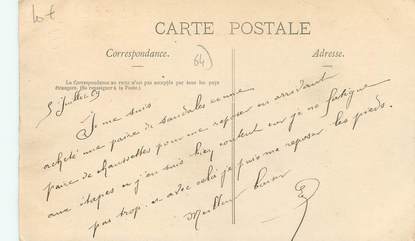 lot
CARTE POSTALE
(64)
Correspondance.
Adresse.
La Correspondance au recto n'est pas acceptée par tous les pays
étrangers. (Se renseigner à la Poste.)
5 Juillet 09
Je me suis
acheté une paire de sandales et une
paire de chaussettes pour me reposer en arrivant
aux étapes et j'en suis bien content car je ne fatigue
pas trop et avec cela je puis me reposer les pieds.
Meilleur baiser